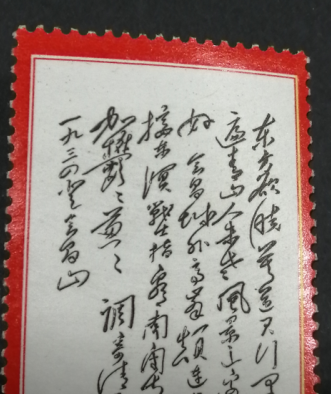 东方欲晓莫道君行早
遍青山人未老风景这边
好 会昌城外高峰颠连
接东溟战士指看南粤
郁郁葱葱 调寄清
一九三四登会昌山